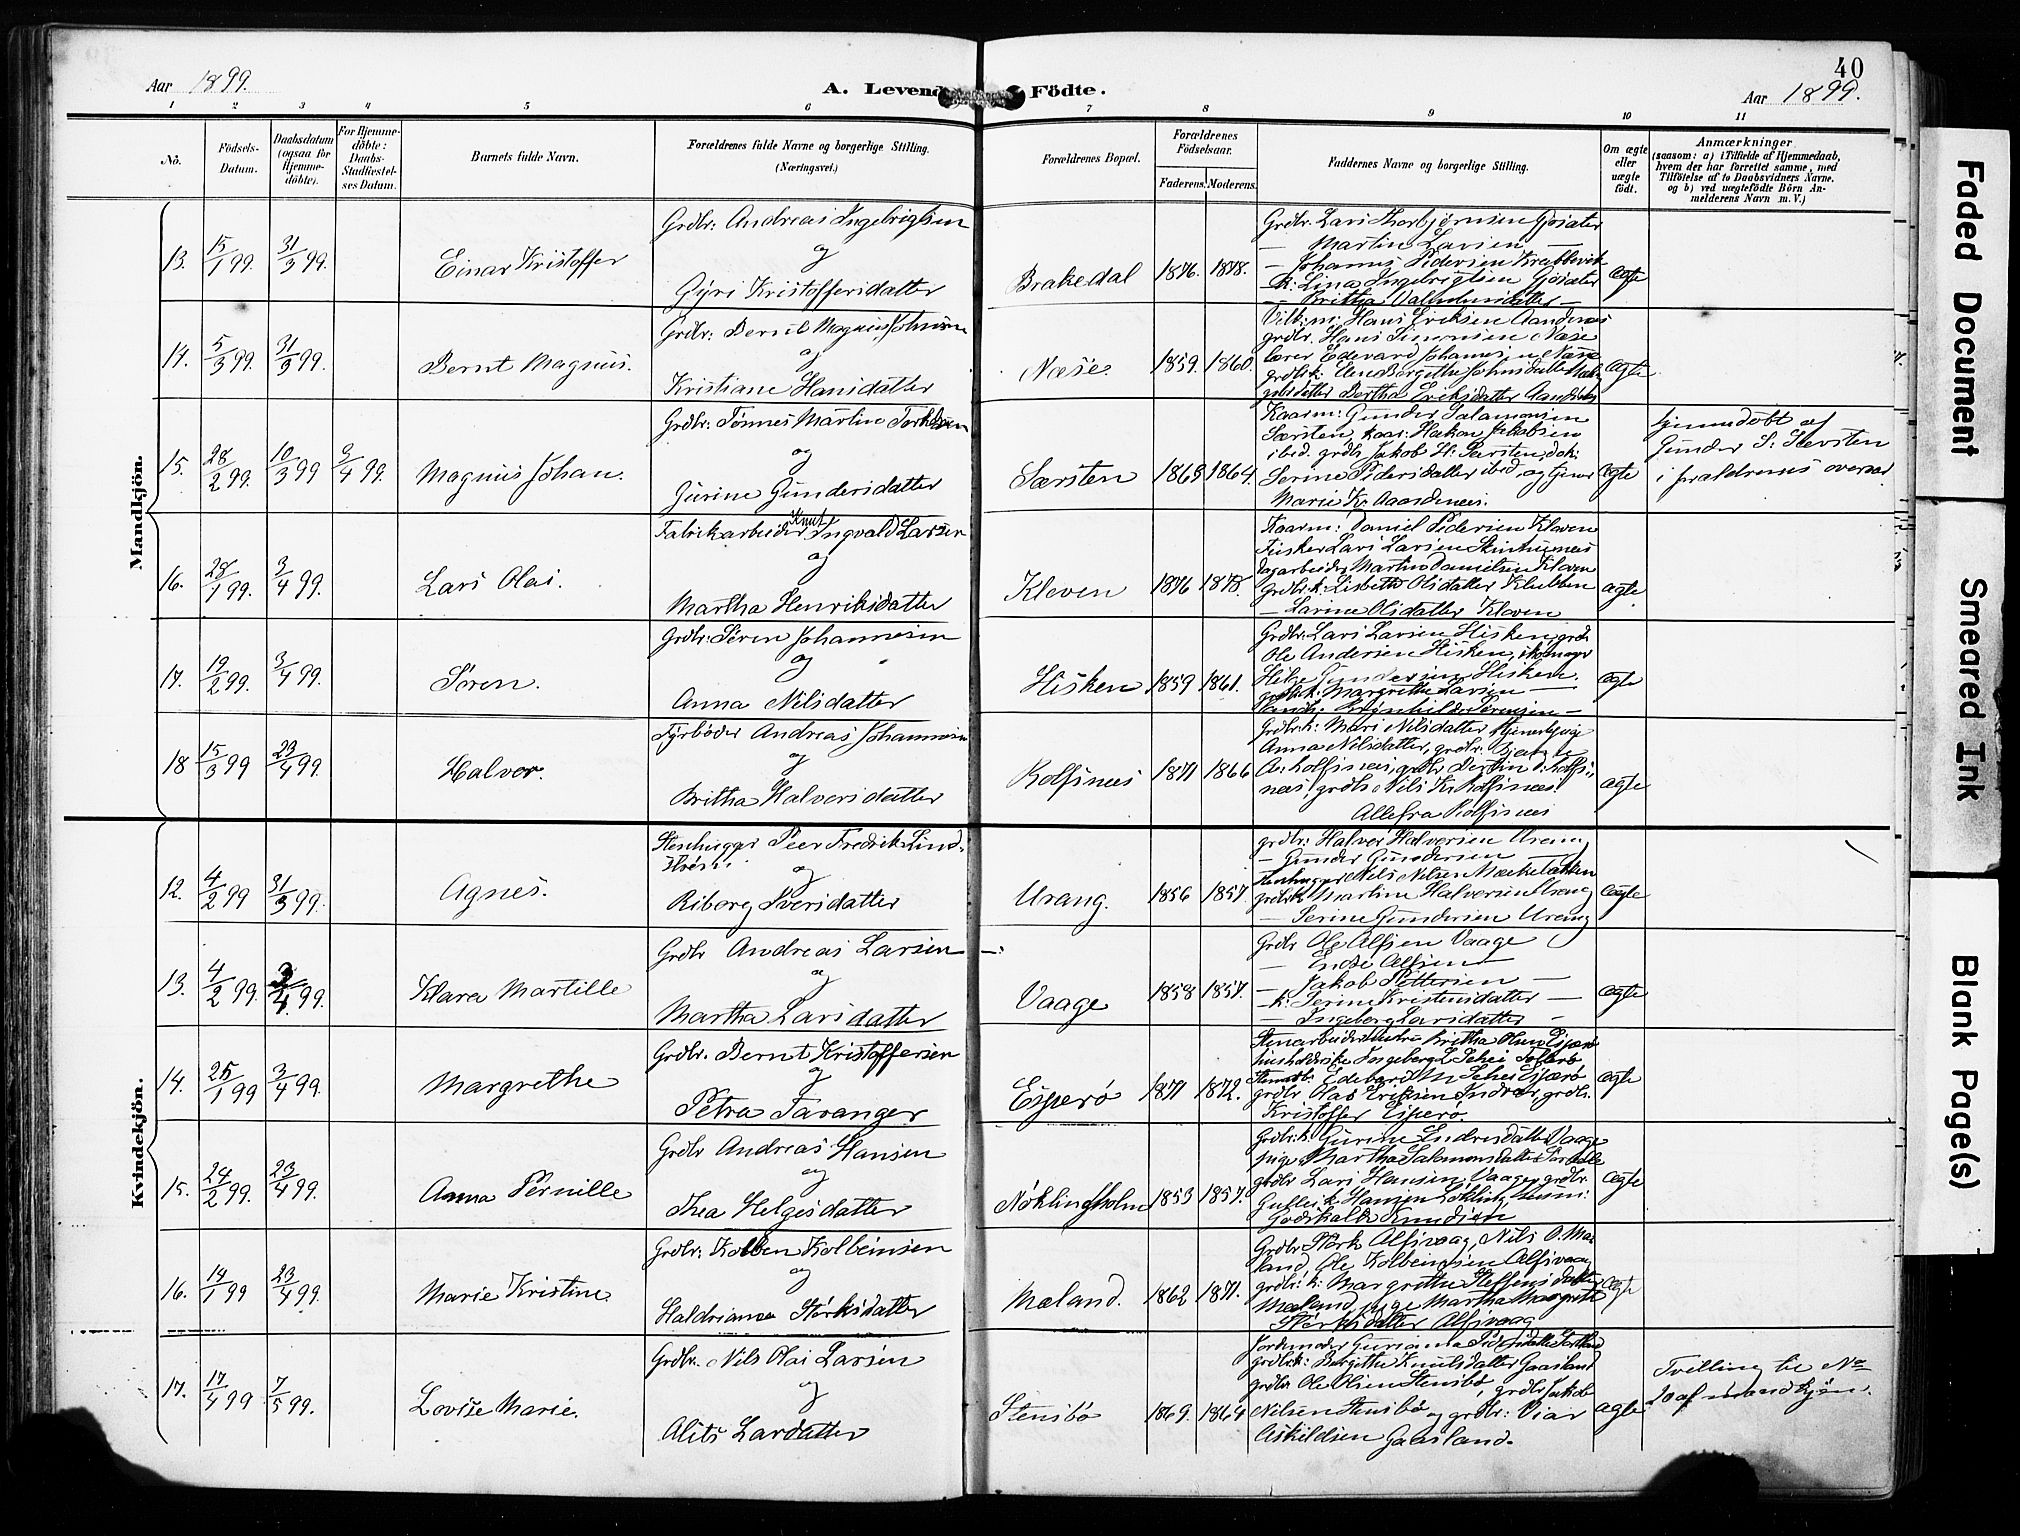 40
Aar 1899.
A. Levende Födte.
Aar 1899.
1 2 3 4 5 6 7 8 9 10 11
No.
Födsels-Datum.
Daabsdatum (ogsaa for Hjemme-döbte).
For Hjemme-döbte: Daabs-Stadfæstel-ses Datum.
Barnets fulde Navn.
Forældrenes fulde Navne og borgerlige Stilling. (Næringsvei.)
Forældrenes Bopæl.
Forældrenes Födselsaar.
Faderens. Moderens.
Faddernes Navne og borgerlige Stilling.
Om ægte eller uægte födt.
Anmærkninger
(saasom: a) i Tilfælde af Hjemmedaab,
hvem der har forrettet samme, med
Tilföielse af to Daabsvidners Navne.
og b) ved uægtefödte Börn An-
melderens Navn m. V.)
Mandkjön.
13. 15/1 99. 31/3 99. Einar Kristoffer
Grdbr: Andreas Ingebrigtsen
og
Gyri Kristoffersdatter
Brakedal 1876. 1878.
Grdbr. Lars Thorbjørnsen Gjøsater
— Martin Larsen —
— Johannes Pedersen Krabbevik
— k: Lina Ingebrigtsen Gjøsater
— Britha —
ægte
14. 5/3 99. 31/3 99. Bernt Magnus.
Grdbr: Bernt Magnus Johnsen
og
Kristiane Hansdatter
Næse 1859. 1860.
Hans Eriksen Aandenes
grdbr. Hans Simonsen Næse
lærer Edevard Johannesen Næse
Bertha Eriksdatter
ægte
15. 28/2 99. 10/3 99 9/4 99. Magnus Johan.
Grdbr: Tönnes Martin Torkelsen
og
Gurine Gundersdatter
Særsten 1868 1864.
Kaarm: Gunder Salamonsen
Særsten, Hakon Jakobsen
ibid. grdbr Jakob H. Særsten,
Serine Pedersdatter ibid og
Marie Kr. Aasdenes.
ægte
hjemmedöbt af
Gunder S. Særsten
i forældrenes overvær
16. 28/1 99. 3/4 99. Lars Olai.
Fabrikarbeider Knut Ingvald Larsen
og
Martha Henriksdatter
Kleven 1876 1878.
Kaarm: Daniel Pedersen Kleven
Fisker Lars Larsen Stenhusnes
dagarbeider Martin Danielsen Kleven
grdbr.k. Lisbeth Olsdatter Klubben
— Larine Olsdatter Kleven
ægte
17. 19/2 99. 3/4 99. Søren.
Grdbr: Søren Johannesen
og
Anna Nilsdatter
Hisken 1859 1861.
Grdbr: Lars Larsen Hisken, grdb.
Ole Andersen Hisken, skomager
Gundersen Hisken.
Margrethe Larsen —
ægte
18 15/3 99 23/4 99. Halvor.
Fyrbøder Andreas Johannesen
og
Britha Halvorsdatter
Rolfsnes 1871 1866
Grdbr.k: Mari Nilsdatter
Anna Nilsdatter, grdbr.
A. Rolfsnes, grdbr
nes, grdbr Nils Kr. Rolfsnes
Alle fra Rolfsnes
ægte
Kvindekjön.
12. 4/2 99 31/3 99. Agnes.
Stenhugger Peer Fredrik Lind-
og
Riborg Sversdatter
Urang. 1856 1857.
grdbr: Halvor Halversen Urang
— Gunder Gundersen
Stenhugger Nils Nilsen
grdbr.k Martine Halversen Urang
— Serine Gundersen Urang
ægte
13. 4/2 99. 3/4 99. Klara Martille
Grdbr Andreas Larsen
og
Martha Larsdatter
Vaage 1858 1857.
Grdbr Ole Alfsen Vaage
— Endre Alfsen —
— Jakob Pettersen —
— k: Serine Kristensdatter —
— Ingeborg Larsdatter —
ægte
14. 25/1 99 3/4 99. Margrethe
Grdbr. Bernt Kristoffersen
og
Petra Tavanger
Esperø 1871 1872.
Stenarbeider Britha Olsen Esperø
Ingeborg L. Schei
Edevard M. Schei Esperø
grdbr Olai Eriksen Indrør, grdbr.
Kristoffer Esperø.
ægte
15. 24/2 99. 23/4 99. Anna Pernille
Grdbr Andreas Hansen
og
Thea Helgesdatter
Nøklingholm 1853 1857.
Grdbr.k. Gurine Endresdatter Vaage
pige Martha Salomonsdatter
grdbr Lars Hansen Vaage, grdbr.
Godskalk Knudsen
ægte
16. 14/1 99 23/4 99. Marie Kristine
Grdbr: Kolben Kolbeinsen
og
Haldriane Størksdatter
Mæland. 1862 1871.
Grdbr Størk Alfsvaag, Nils O. Mæ-
land, Ole Kolbeinsen Alfsvaag
grdbr.k: Margrethe Steffensdatter
Mæland, pige Martha Margrete
Størksdatter Alfsvaag
ægte
17. 17/4 99 7/5 99. Lovise Marie.
Grdbr. Nils Olai Larsen
og
Alits Larsdatter
Stensbø 1869. 1864
Jordemoder Guriane Pedersdatter
grdbr.k: Bergithe Knutsdatter Gaasland
grdbr Ole Olsen Stensbø, grdbr Jakob
Nilsen Stensbø og grdbr: Viar
Askildsen Gaasland.
ægte
Tvilling til No
20 af mandkjøn.
Faded Document
Smeared Ink
Blank Page(s)